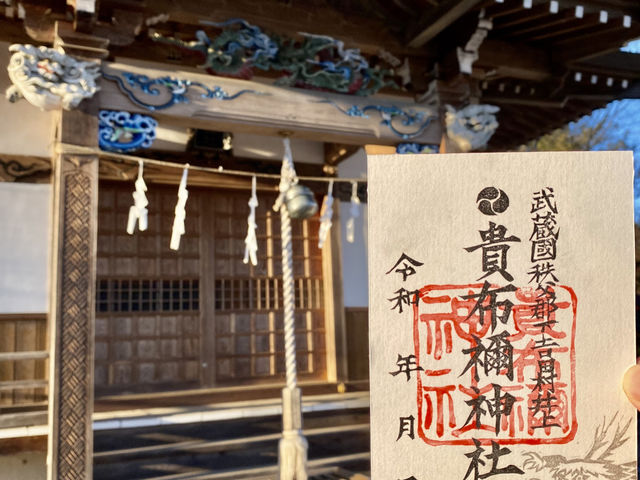 武蔵國秩父郡下吉田村井上
貴布禰神社
令和 年 月